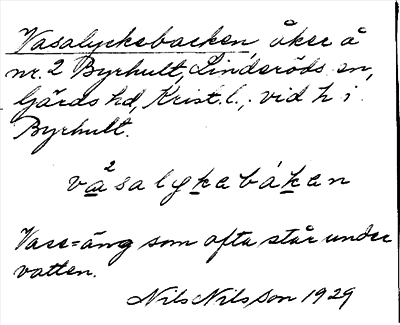 Vasalyckebacken, åker å
nr. 2 Byrhult, Linderöds sn,
Gärds hd, Krist. l., vid h i
Byrhult.
va²salykebáken
Vase = äng som ofta står under
vatten.
Nils Nilsson 1929